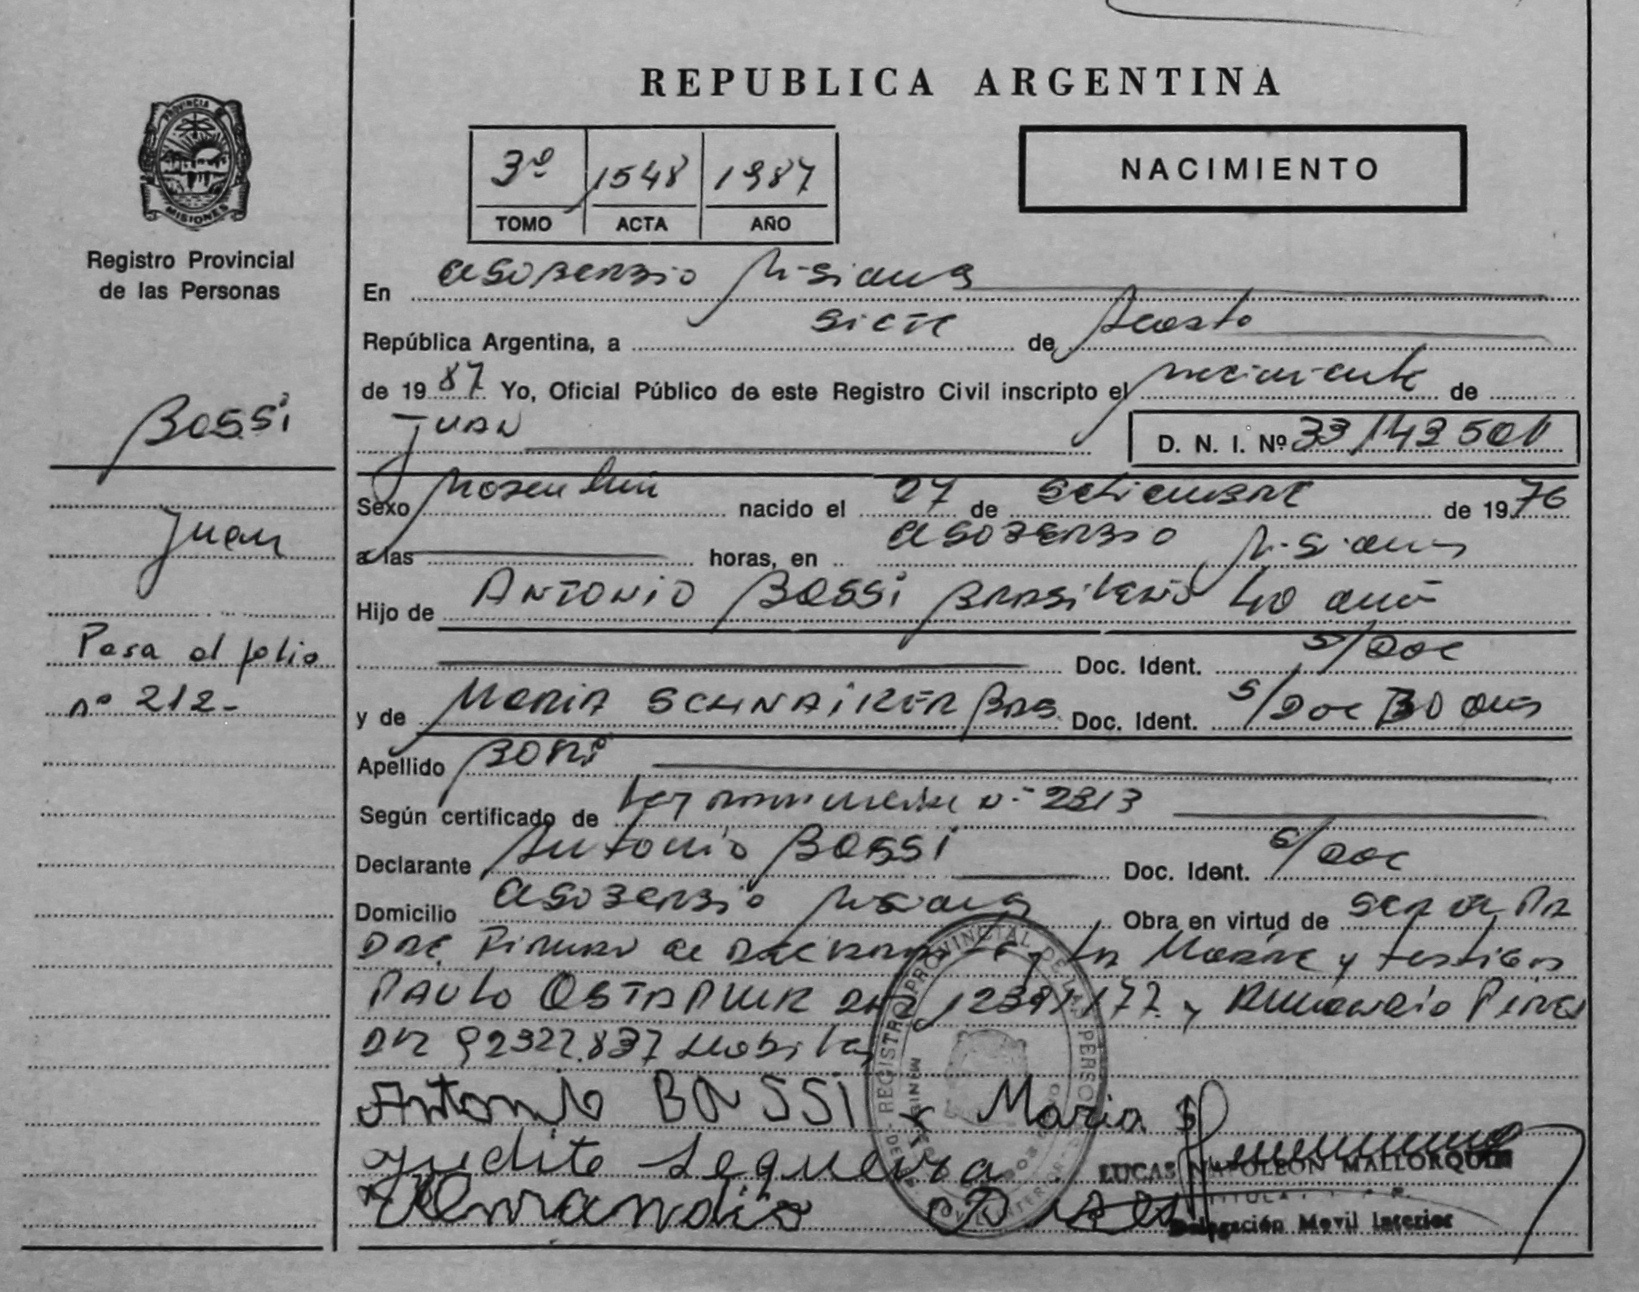 PROVINCIA
MISIONES
Registro Provincial
de las Personas
Bossi
Juan
Pasa al folio
nº 212-
REPUBLICA ARGENTINA
3º 1548 1987
TOMO ACTA AÑO
NACIMIENTO
En Misiones
República Argentina, a siete de Agosto
de 1987 Yo, Oficial Público de este Registro Civil inscripto el nacimiento de
JUAN D. N. I. Nº 33/143501
Sexo Masculino nacido el 27 de setiembre de 1976
a las horas, en Misiones
Hijo de ANTONIO BOSSI BRASILEÑO 40 años
Doc. Ident. S/Doc
y de MARIA SCHNAIKER Bras. Doc. Ident. S/Doc 30 años
Apellido
Según certificado de nº 2313
Declarante Antonio Bossi Doc. Ident. S/Doc
Domicilio Misiones Obra en virtud de ser el Pa
dre. Firman el declarante, la Madre y testigos
PAULO y Amandio Pires
92322.837
Antonio BOSSI Maria S
Judite Sequeira
Amandio Pires
REGISTRO PROVINCIAL DE LAS PERSONAS
LUCAS NAPOLEON MALLORQUIN
TITULAR
Delegación Movil Interior